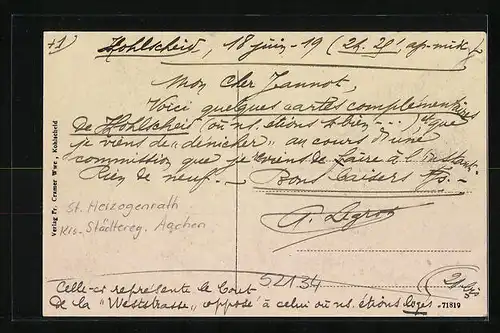 +1)
Kohlscheid, 18 juin-19 (2h. 25', ap.-midi)
Mon Cher Jeannot,
Voici quelques cartes complémentaires
de Kohlscheit (où ns. étions si bien...), et que
je viens de "dénicher" au cours d'une
commission que je viens de faire à l'instant.
Rien de neuf. — Bons baisers Fs. —
A. Legros
St. Herzogenrath
Krs. Städtereg. Aachen
52134
Celle-ci représente le bout
de la "Weststrasse" opposé à celui où ns. étions logés
Verlag Fr. Cramer Wwe, Kohlscheid
71819